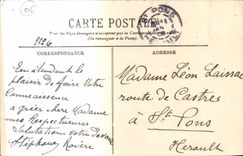 CARTE POSTALE
Tous les pays étrangers n'acceptent pas la Correspondance au recto
(Se renseigner à la Poste)
CORRESPONDANCE
ADRESSE
En attendant le
plaisir de faire votre
Connaissance
agréer chère Madame
mes Respectueuses
Salutations
Madame Léon Laissac
route de Castres
à St Pons
Hérault